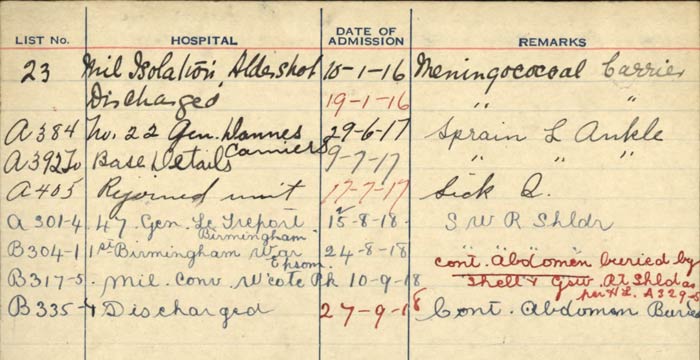 LIST No. HOSPITAL DATE OF ADMISSION REMARKS
23 Mil Isolation, Aldershot 10-1-16 Meningococcal Carrier
Discharged 19-1-16 " "
A384 No. 22 Gen. Dannes Camiers 29-6-17 Sprain L Ankle
A392 To Base Details 9-7-17 " " "
A405 Rejoined unit 17-7-17 Sick
A301-4 47 Gen. Le Treport 15-8-18 S W R Shldr
B304-1 1st Birmingham War Birmingham 24-8-18
cont. Abdomen buried by
B317-5 Mil. Conv. Epsom 10-9-18 Shell & Gsw. Rt Shld as
per H L. A329
B335-4 Discharged 27-9-18 Cont. Abdomen Buried